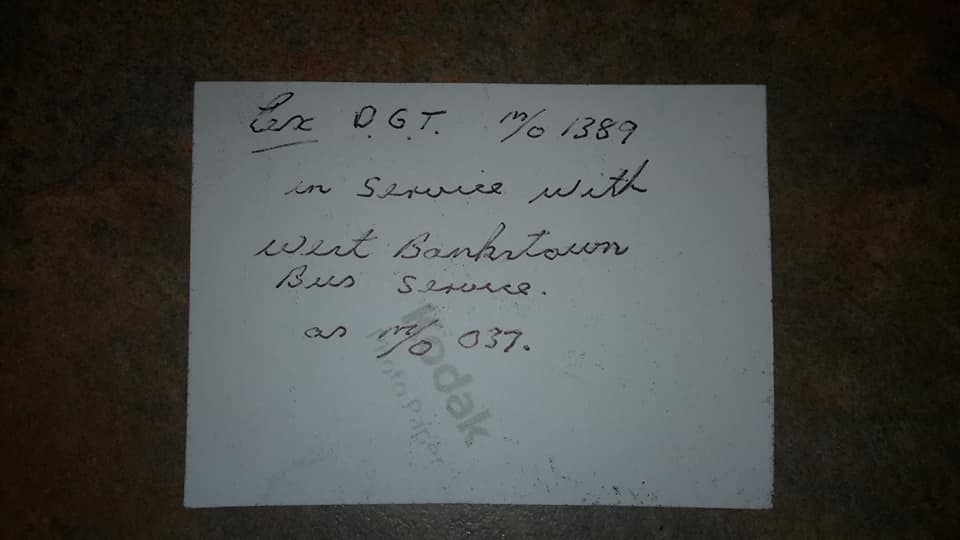 Ex D.G.T. m/o 1389
in Service with
West Bankstown
Bus Service.
as m/o 037.
Kodak
Moto Paper